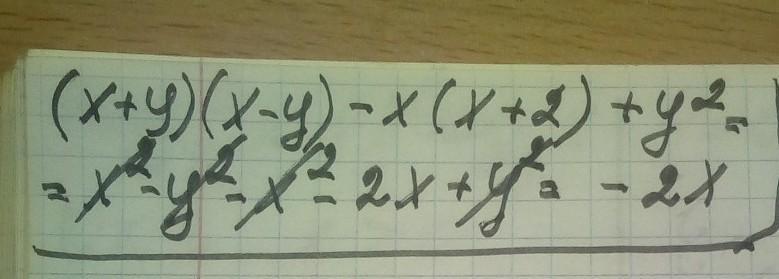 (x+y)(x-y)-x(x+2)+y²=
=x²-y²-x²-2x+y²=-2x